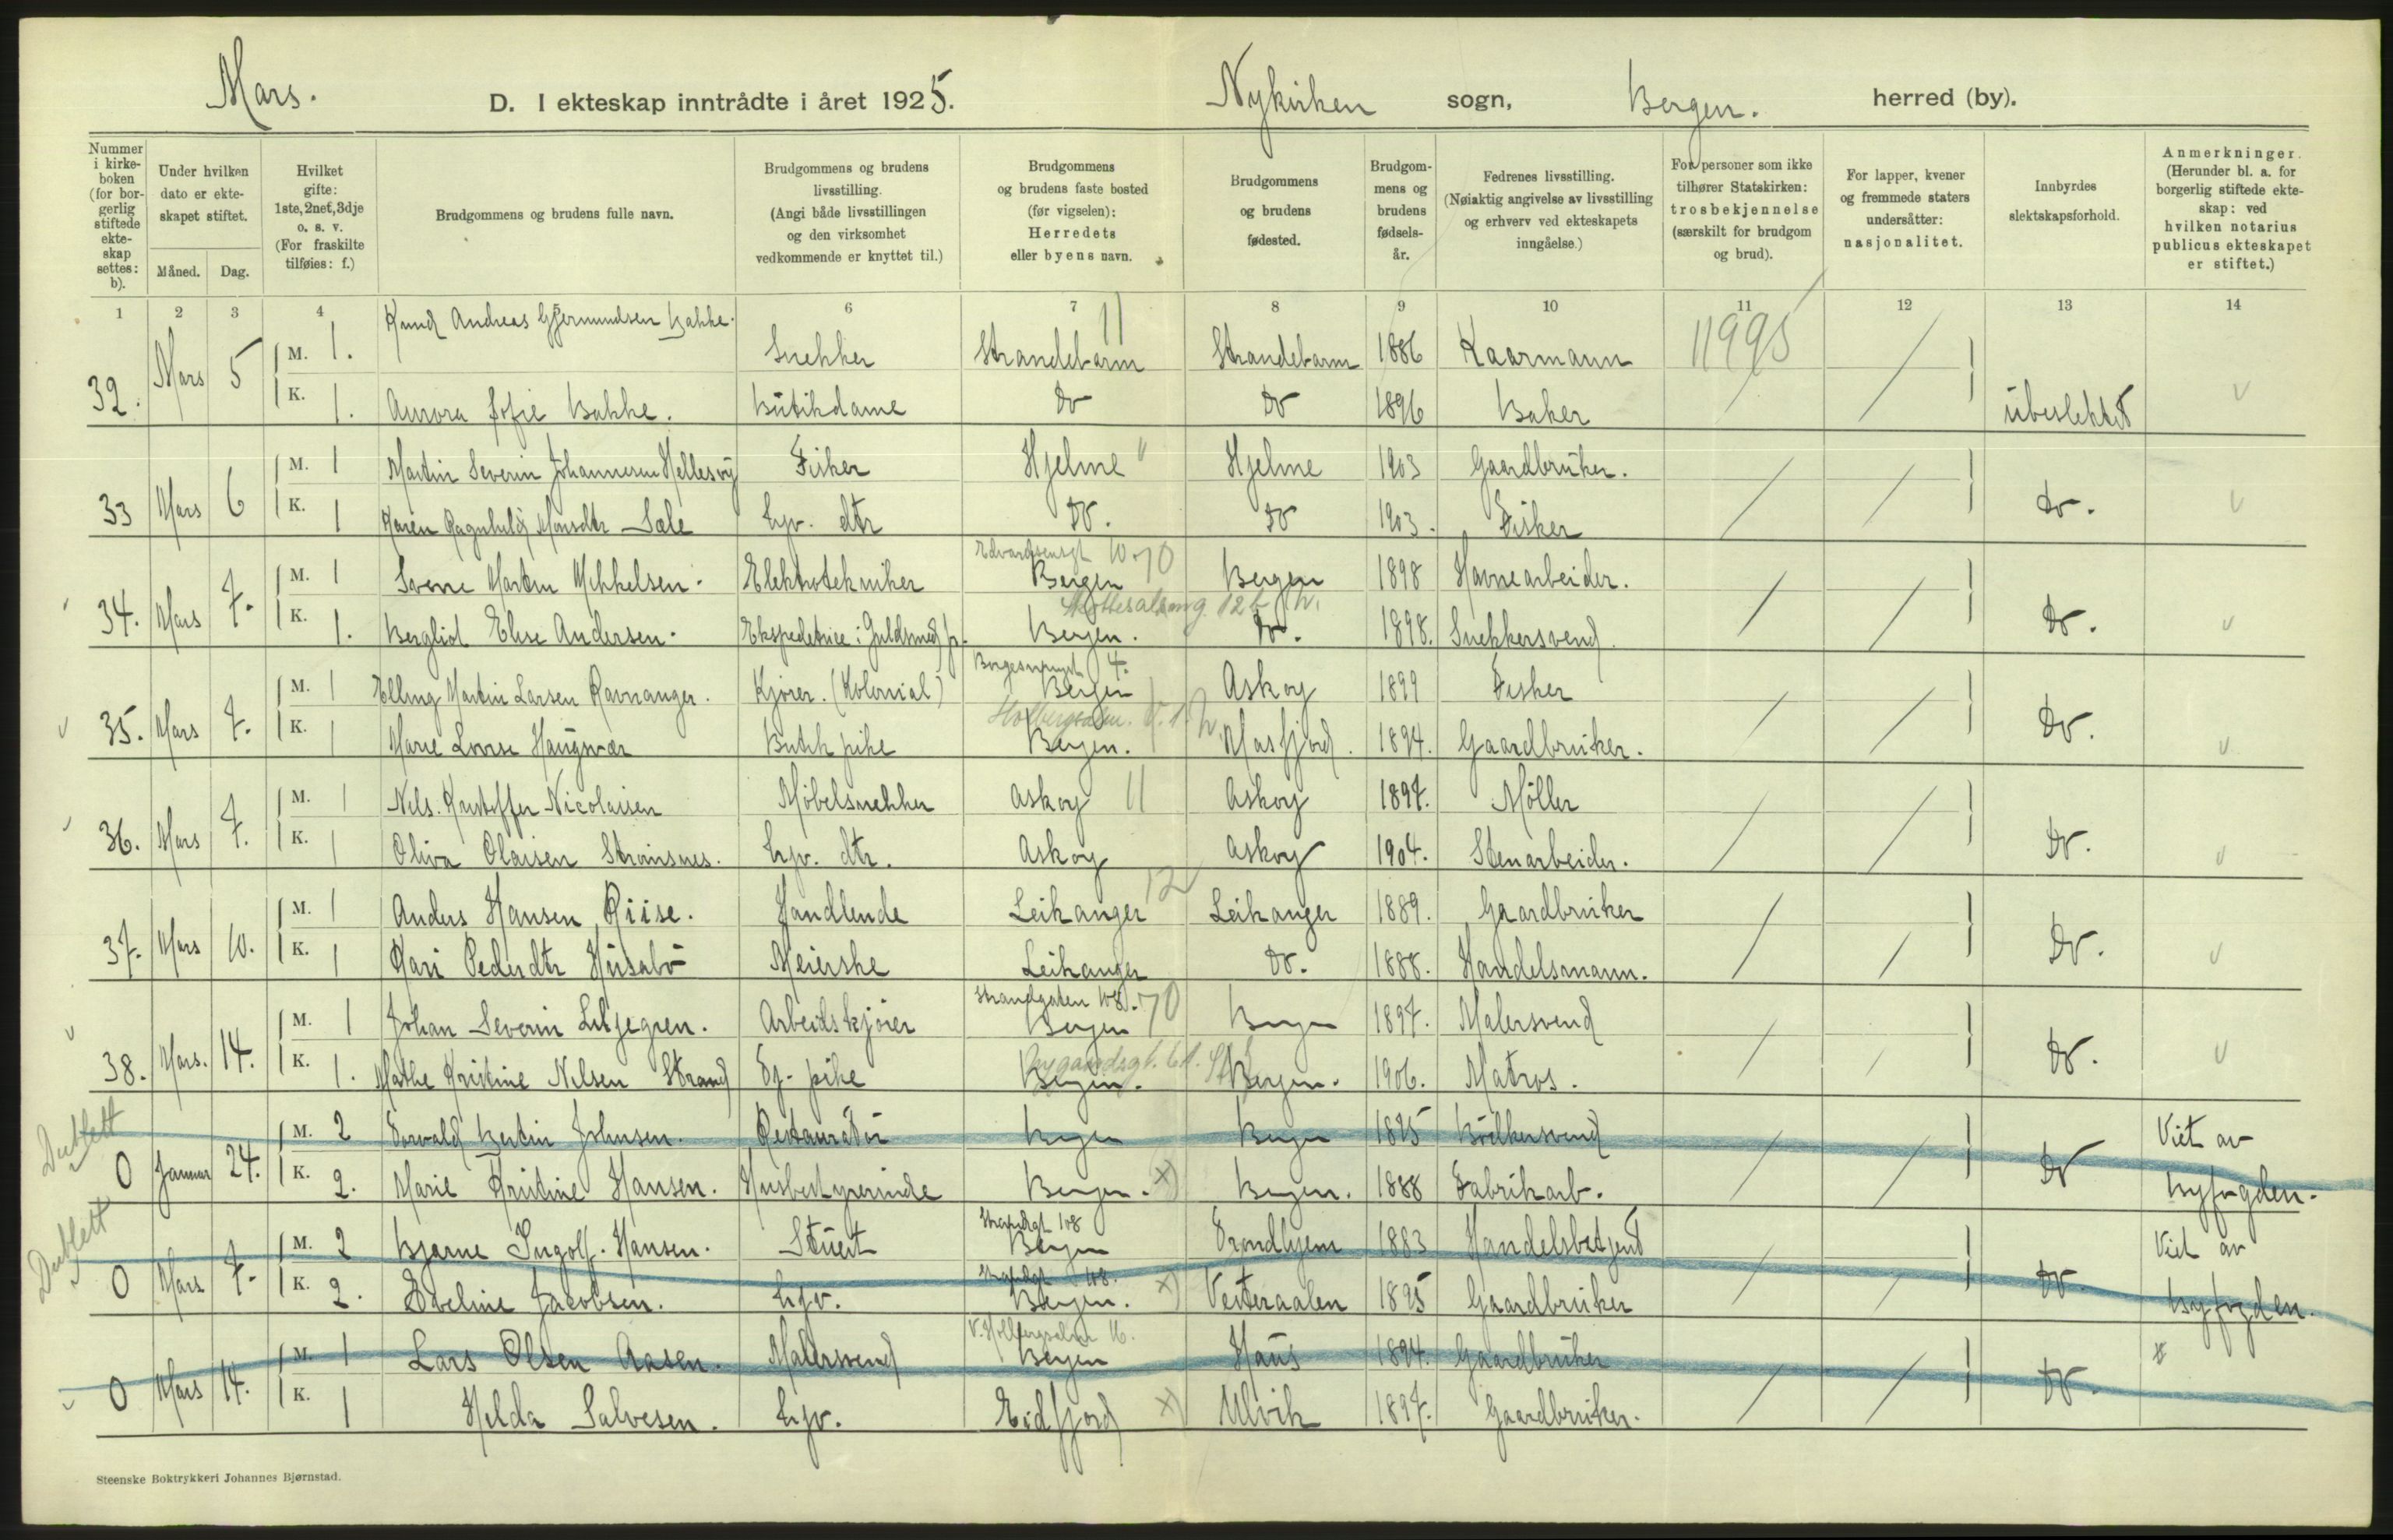 Mars.
D. I ekteskap inntrådte i året 1925.
Nykirken sogn, Bergen. herred (by).
Nummer i kirkeboken (for borgerlig stiftede ekteskap settes: b).
Under hvilken dato er ekteskapet stiftet.
Måned. Dag.
Hvilket gifte: 1ste, 2net, 3dje o. s. v. (For fraskilte tilføies: f.)
Brudgommens og brudens fulle navn.
Brudgommens og brudens livsstilling. (Angi både livsstillingen og den virksomhet vedkommende er knyttet til.)
Brudgommens og brudens faste bosted (før vigselen): Herredets eller byens navn.
Brudgommens og brudens fødested.
Brudgommens og brudens fødselsår.
Fedrenes livsstilling. (Nøiaktig angivelse av livsstilling og erhverv ved ekteskapets inngåelse.)
For personer som ikke tilhører Statskirken: trosbekjennelse (særskilt for brudgom og brud).
For lapper, kvener og fremmede staters undersåtter: nasjonalitet.
Innbyrdes slektskapsforhold.
Anmerkninger. (Herunder bl. a. for borgerlig stiftede ekteskap: ved hvilken notarius publicus ekteskapet er stiftet.)
1 2 3 4 5 6 7 8 9 10 11 12 13 14
32. Mars 5 M. 1. Knud Andreas Gjermundsen Bakke. Snekker Strandebarm 11 Strandebarm 1886 Kaarmann 11995
K. 1. Aurora Sofie Bakke. Butikdame Do Do 1896 Baker ubeslektet
33 Mars 6 M. 1 Martin Severin Johannesen Hellesøy Fisker Hjelme " Hjelme 1903 Gaardbruker.
K. 1 Karen Ragnhild Monsdtr Sæle hjv. dtr Do. Do 1903. Fisker Do.
Edvardsensgt 10 - 70
34. Mars 7. M. 1 Sverre Martin Mikkelsen. Elektrotekniker Bergen Bergen 1898 Havnearbeider.
12 b
K. 1. Bergliot Elise Andersen. Ekspeditrice i Guldsmed fr. Bergen. Do. 1898. Snekkersvend Do.
4.
35. Mars 7. M. 1 Elling Martin Larsen Ravnanger. Kjører. (Kolonial) Bergen Askøy 1899 Fisker
K. 1 Marie Lovise Haugsvær Butik pike Bergen. Masfjord. 1894. Gaardbruker. Do.
36. Mars 7. M. 1 Nils Kristoffer Nicolaisen Möbelsnekker Askøy 11 Askøy 1897. Möller
K. 1 Oliva Olaisen Strømsnes. hjv. dtr. Askøy Askøy 1904. Stenarbeider. Do.
37. Mars 10. M. 1 Anders Hansen Riise. Handlende Leikanger 12 Leikanger 1889. Gaardbruker
K. 1 Kari Pedersdtr Husabö Meierske Leikanger Do. 1888. Handelsmann. Do.
Strandgaten 108. - 70
38. Mars. 14. M. 1 Johan Severin Liljegren. Arbeidskjører Bergen Bergen 1897. Malersvend
Nygaardsgt.
K. 1. Mathe Kristine Nilsen Strand Bergen. Bergen. 1906. Matros. Do.
Dublett
0 Januar 24. M. 2 Torvald Bertin Johnsen. Restauratör Bergen Bergen 1885 Bödkersvend Viet av
K. 2. Marie Kristine Hansen. Husbestyrerinde Bergen. x) Bergen. 1888 Fabrikarb. Do Byfogden.
Dublett
Strandgt 108
0 Mars 7. M. 2 Bjarne Ingolf Hansen. Stuert Bergen Trondhjem 1883 Handelsbetjent Viet av
Strandgt 108.
K. 2. Eveline Jacobsen. hjv. Bergen. x) Vesteraalen 1895 Gaardbruker Do. Byfogden.
V. Holbergsalm 16.
0 Mars 14. M. 1 Lars Olsen Aasen. Malersvend Bergen Haus 1894. Gaardbruker
K. 1 Helda Salvesen. hjv. Eidfjord x) Ulvik 1897. Gaardbruker. Do.
Steenske Boktrykkeri Johannes Bjørnstad.